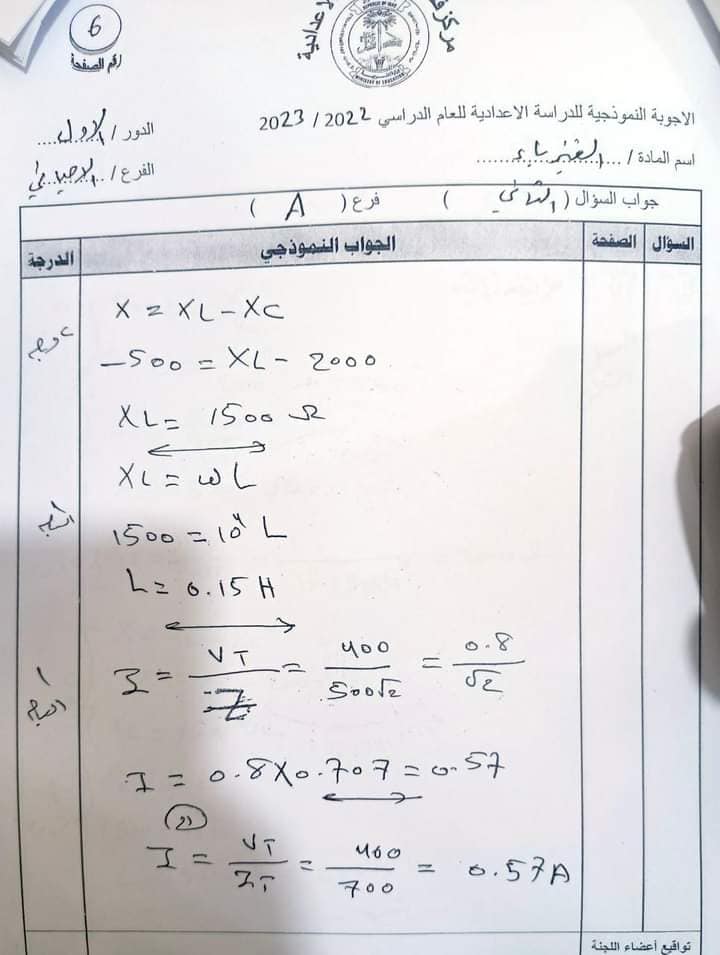 6
رقم الصفحة
الاجوبة النموذجية للدراسة الاعدادية للعام الدراسي 2022 / 2023
الدور / الاول
اسم المادة / الفيزياء
الفرع / الاحيائي
جواب السؤال ( الثاني ) فرع ( A )
السؤال الصفحة الجواب النموذجي الدرجة
X = XL - XC
-500 = XL - 2000
XL = 1500 Ω
XL = ωL
1500 = 10⁴ L
L = 0.15 H
I = VT/Z = 400/500√2 = 0.8/√2
I = 0.8 X 0.707 = 0.57
I = VT/ZT = 400/700 = 0.57A
تواقيع أعضاء اللجنة